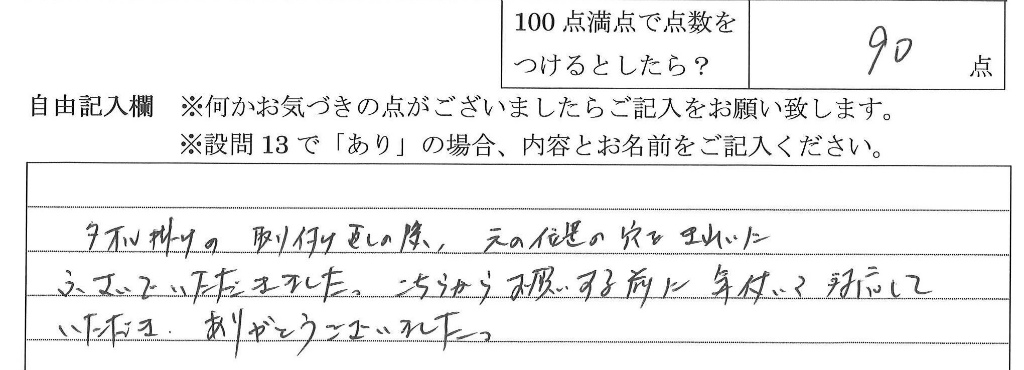 100点満点で点数を
つけるとしたら？
90 点
自由記入欄 ※何かお気づきの点がございましたらご記入をお願い致します。
※設問13で「あり」の場合、内容とお名前をご記入ください。
タオル掛けの 取り付け直しの際、元の位置の穴を きれいに
ふさいでいただきました。こちらからお願いする前に 気付いて 対応して
いただき、ありがとうございました。